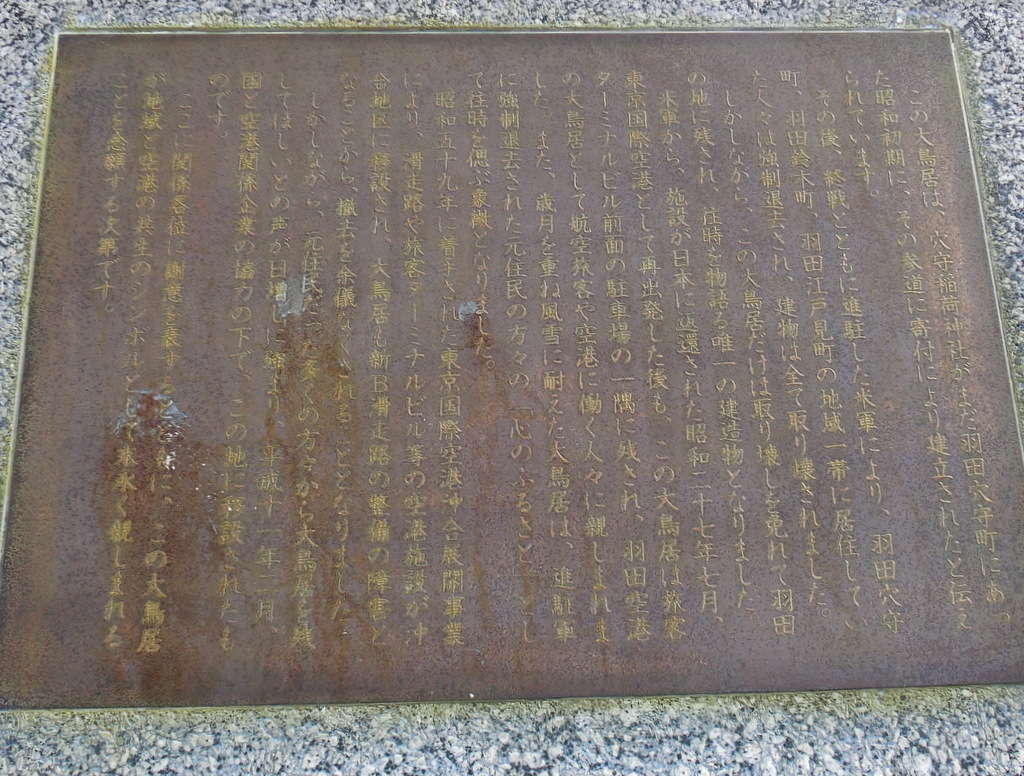 この大鳥居は、穴守稲荷神社がまだ羽田穴守町にあっ
た昭和初期に、その参道に寄付により建立されたと伝え
られています。
その後、終戦とともに進駐した米軍により、羽田穴守
町、羽田鈴木町、羽田江戸見町の地域一帯に居住してい
た人々は強制退去され、建物は全て取り壊されました。
しかしながら、この大鳥居だけは取り壊しを免れて羽田
の地に残され、往時を物語る唯一の建造物となりました。
米軍から、施設が日本に返還された昭和二十七年七月、
東京国際空港として再出発した後も、この大鳥居は旅客
ターミナルビル前面の駐車場の一隅に残され、羽田空港
の大鳥居として航空旅客や空港に働く人々に親しまれま
した。また、歳月を重ね風雪に耐えた大鳥居は、進駐軍
に強制退去された元住民の方々の「心のふるさと」とし
て往時を偲ぶ象徴となりました。
昭和五十九年に着手された東京国際空港沖合展開事業
により、滑走路や旅客ターミナルビル等の空港施設が沖
合地区に移設され、大鳥居も新B滑走路の整備の障害と
なることから、撤去を余儀なくされることとなりました
しかしながら、元住民だった多くの方々から大鳥居を残
してほしいとの声が日増しに強まり、平成十一年二月、
国と空港関係企業の協力の下で、この地に移設されたも
のです。
ここに関係各位に謝意を表するとともに、この大鳥居
が地域と空港の共生のシンボルとして末永く親しまれる
ことを念願する次第です。